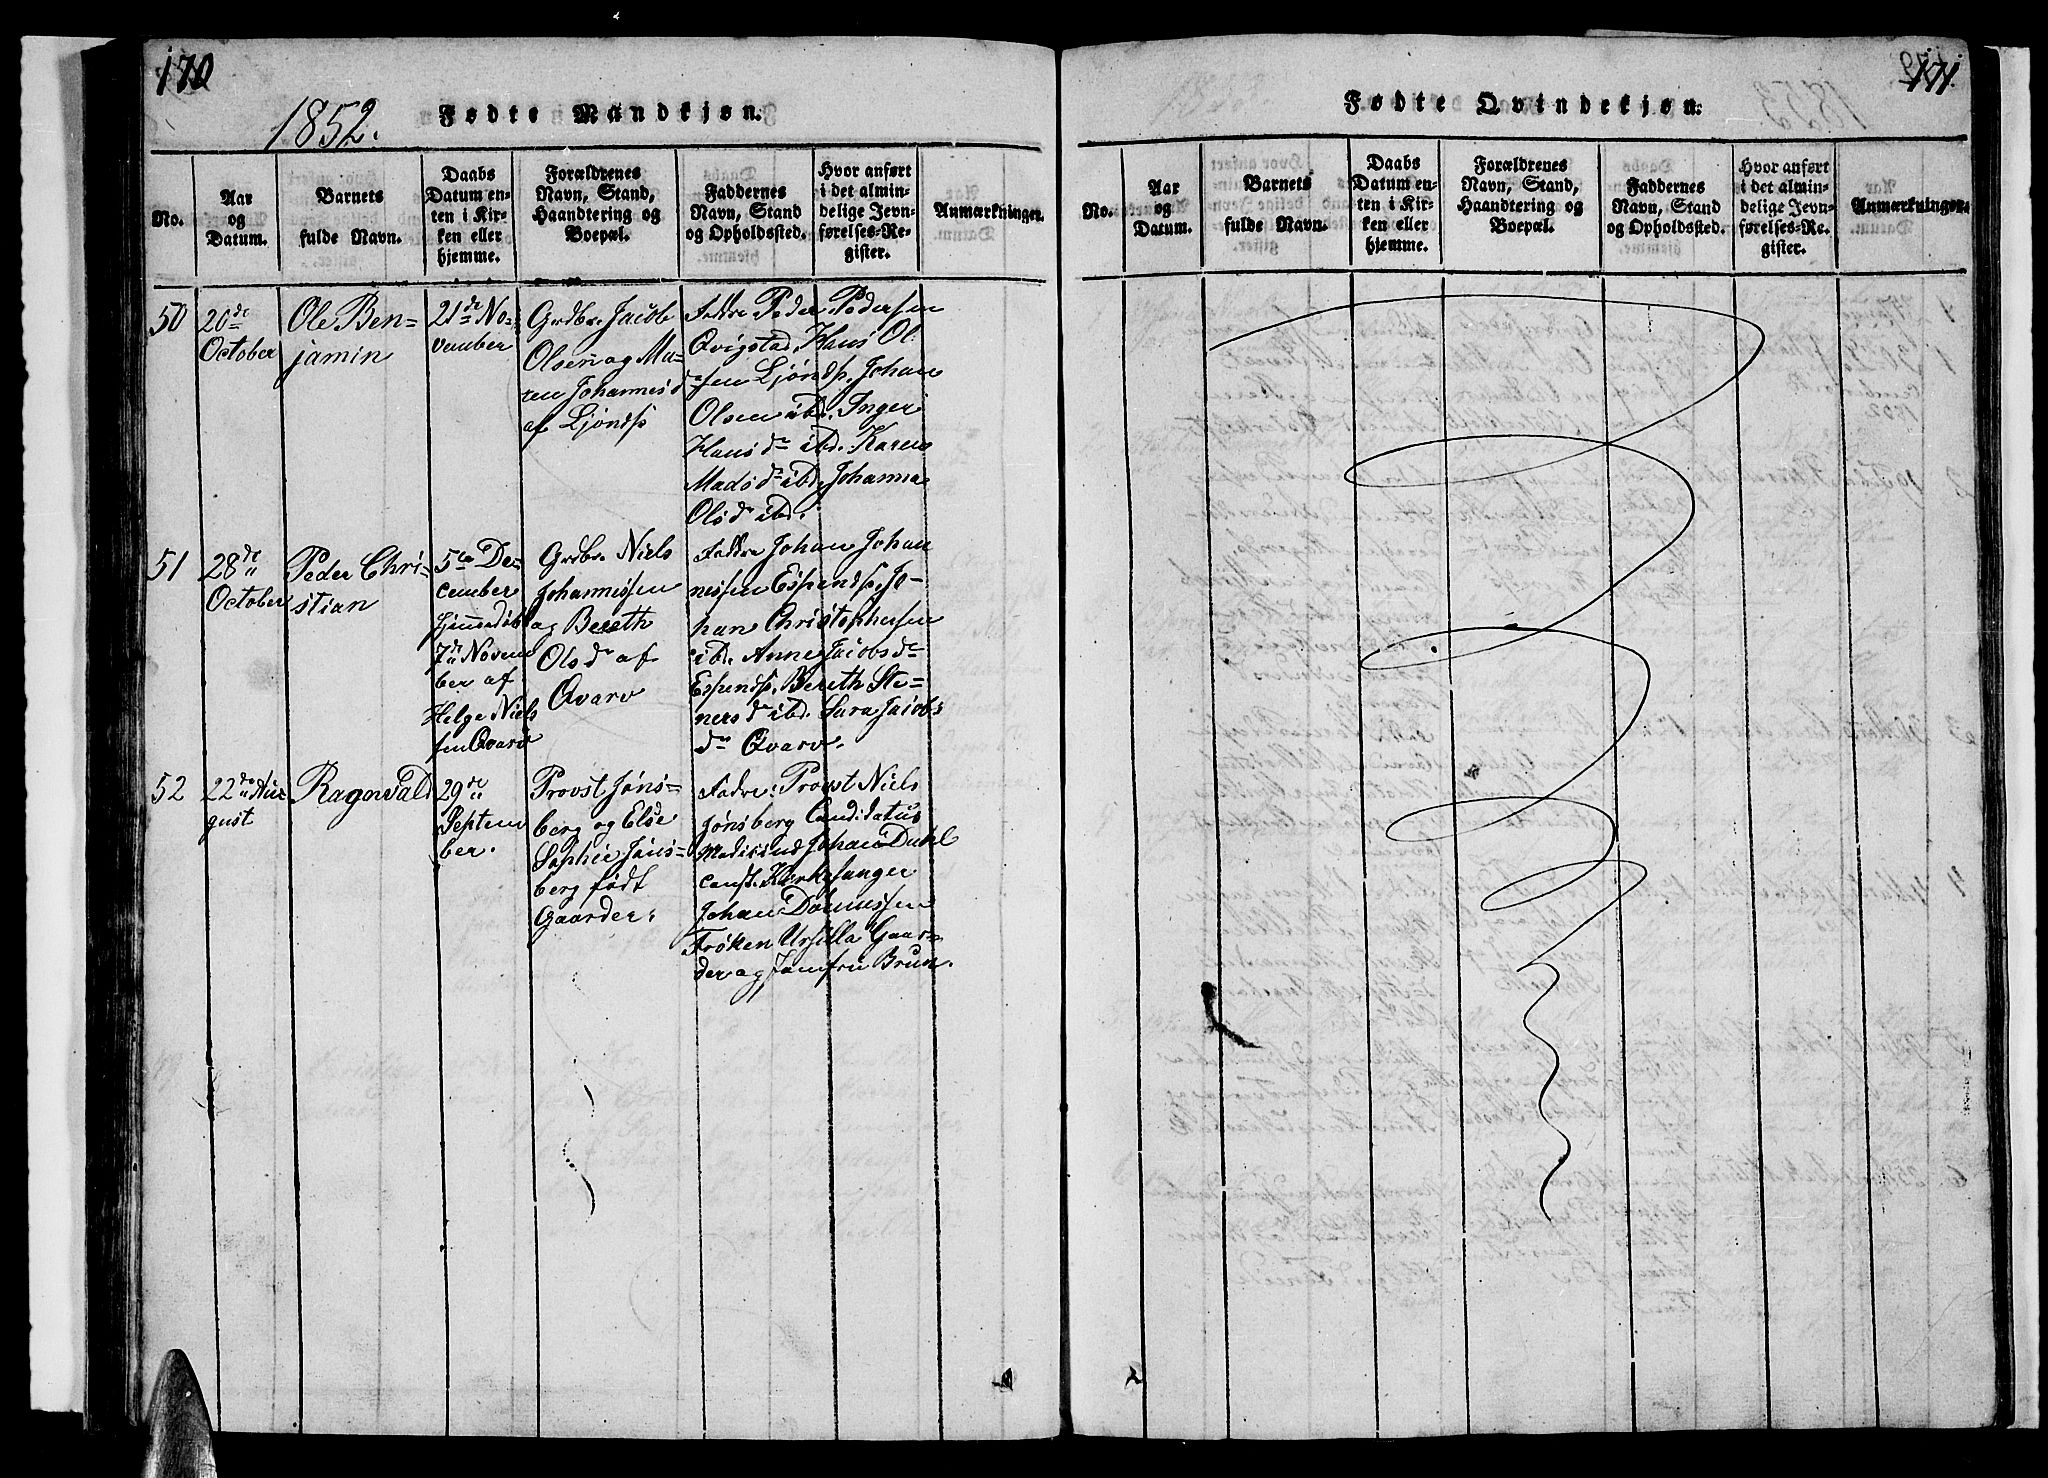 170
1852.
Fødte Mandkjøn.
No.
Aar
og
Datum.
Barnets
fulde Navn.
Daabs
Datum en-
ten i Kir-
ken eller
hjemme.
Forældrenes
Navn, Stand,
Haandtering og
Boepæl.
Faddernes
Navn, Stand
og Opholdssted.
Hvor anført
i det almin-
delige Jevn-
førelses-Re-
gister.
Anmærkninger.
50
20de
October
Ole Ben-
jamin
21de No-
vember
Grdbr. Jacob
Olsen og Ma-
ren Johannesd
af Ljøndsp
Faddre Peder Pedersen
Qvigstad, Hans Ol
sen Ljøndsp, Johan
Olsen ibd. Inger
Hansdr ibd. Karen
Madsdr ibd, Johanna
Olsdr ibd.
51
28de
October
Peder Chri-
stian
5te De-
cember
Hjemmedøbt
7de Novem
ber af
Helge Niels
sen Qvarv
Grdbr. Niels
Johannessen
og Bereth
Olsdr af
Qvarv
Faddre Johan Johan
nessen Espendsp, Jo-
han Christophersen
ibd. Anne Jacobsdr
Espendsp. Bereth Ste-
nersdr ibd. Sara Jacobs
dr Qvarv.
52
22de Au-
gust
Ragnvald
29de
Septem
ber.
Provst Jøns-
berg og Else
Sophie Jøns-
berg født
Gaarder.
Fadre: Provst Niels
Jønsberg Candidatus
Medicine Johan Dahl
const. Kirkesanger
Johan
Frøken Ursilla Gaar-
der og Jomfru Brun.
171.
Fødte Qvindekjøn.
No.
Aar
og
Datum.
Barnets
fulde Navn.
Daabs
Datum en-
ten i Kir-
ken eller
hjemme.
Forældrenes
Navn, Stand,
Haandtering og
Boepæl.
Faddernes
Navn, Stand
og Opholdssted.
Hvor anført
i det almin-
delige Jevn-
førelses-Re-
gister.
Anmærkninger.